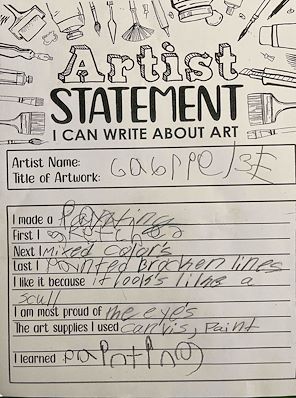 Artist
STATEMENT
I CAN WRITE ABOUT ART
Artist Name:
Title of Artwork:
I made a Painting
First I sketched
Next I Mixed color's
Last I painted brocken lines
I like it because it look's like a
scull
I am most proud of the eye's
The art supplies I used canvis, paint
I learned painting